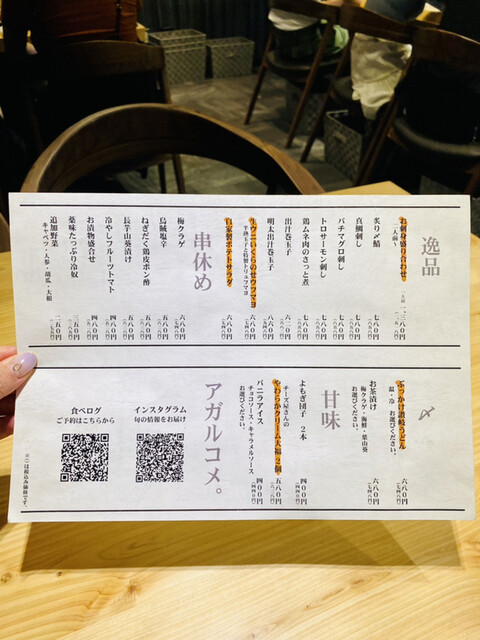 逸品
お刺身盛り合わせ 一、三八〇円
二人前〜
炙り〆鯖 七八〇円
真鯛刺し 七八〇円
バチマグロ刺し 七八〇円
トロサーモン刺し 七八〇円
鶏ムネ肉のさっと煮 七八〇円
出汁巻玉子 六二〇円
明太出汁巻玉子 八六〇円
生ウニいくらのせウフマヨ
半熟玉子と特製トリュフマヨ
自家製ポテトサラダ 六八〇円
串休め
梅クラゲ 六八〇円
烏賊塩辛
ねぎだく鶏皮ポン酢
長芋山葵漬け
冷やしフルーツトマト 四八〇円
お漬物盛合せ 四八〇円
薬味たっぷり冷奴
追加野菜 二五〇円
キャベツ・人参・胡瓜・大根
〆
ぶっかけ讃岐うどん 六八〇円
温・冷 お選びください。
お茶漬け 六八〇円
梅クラゲ・海鮮・葉山葵
お選びください。
甘味
よもぎ団子 2本 四〇〇円
チーズ屋さんの
やわらかクリーム大福 2個 五八〇円
バニラアイス 四〇〇円
チョコソース・キャラメルソース
お選びください。
アガルコメ。
インスタグラム
旬の情報をお届け
食べログ
ご予約はこちらから
※( )は税込み価格です。